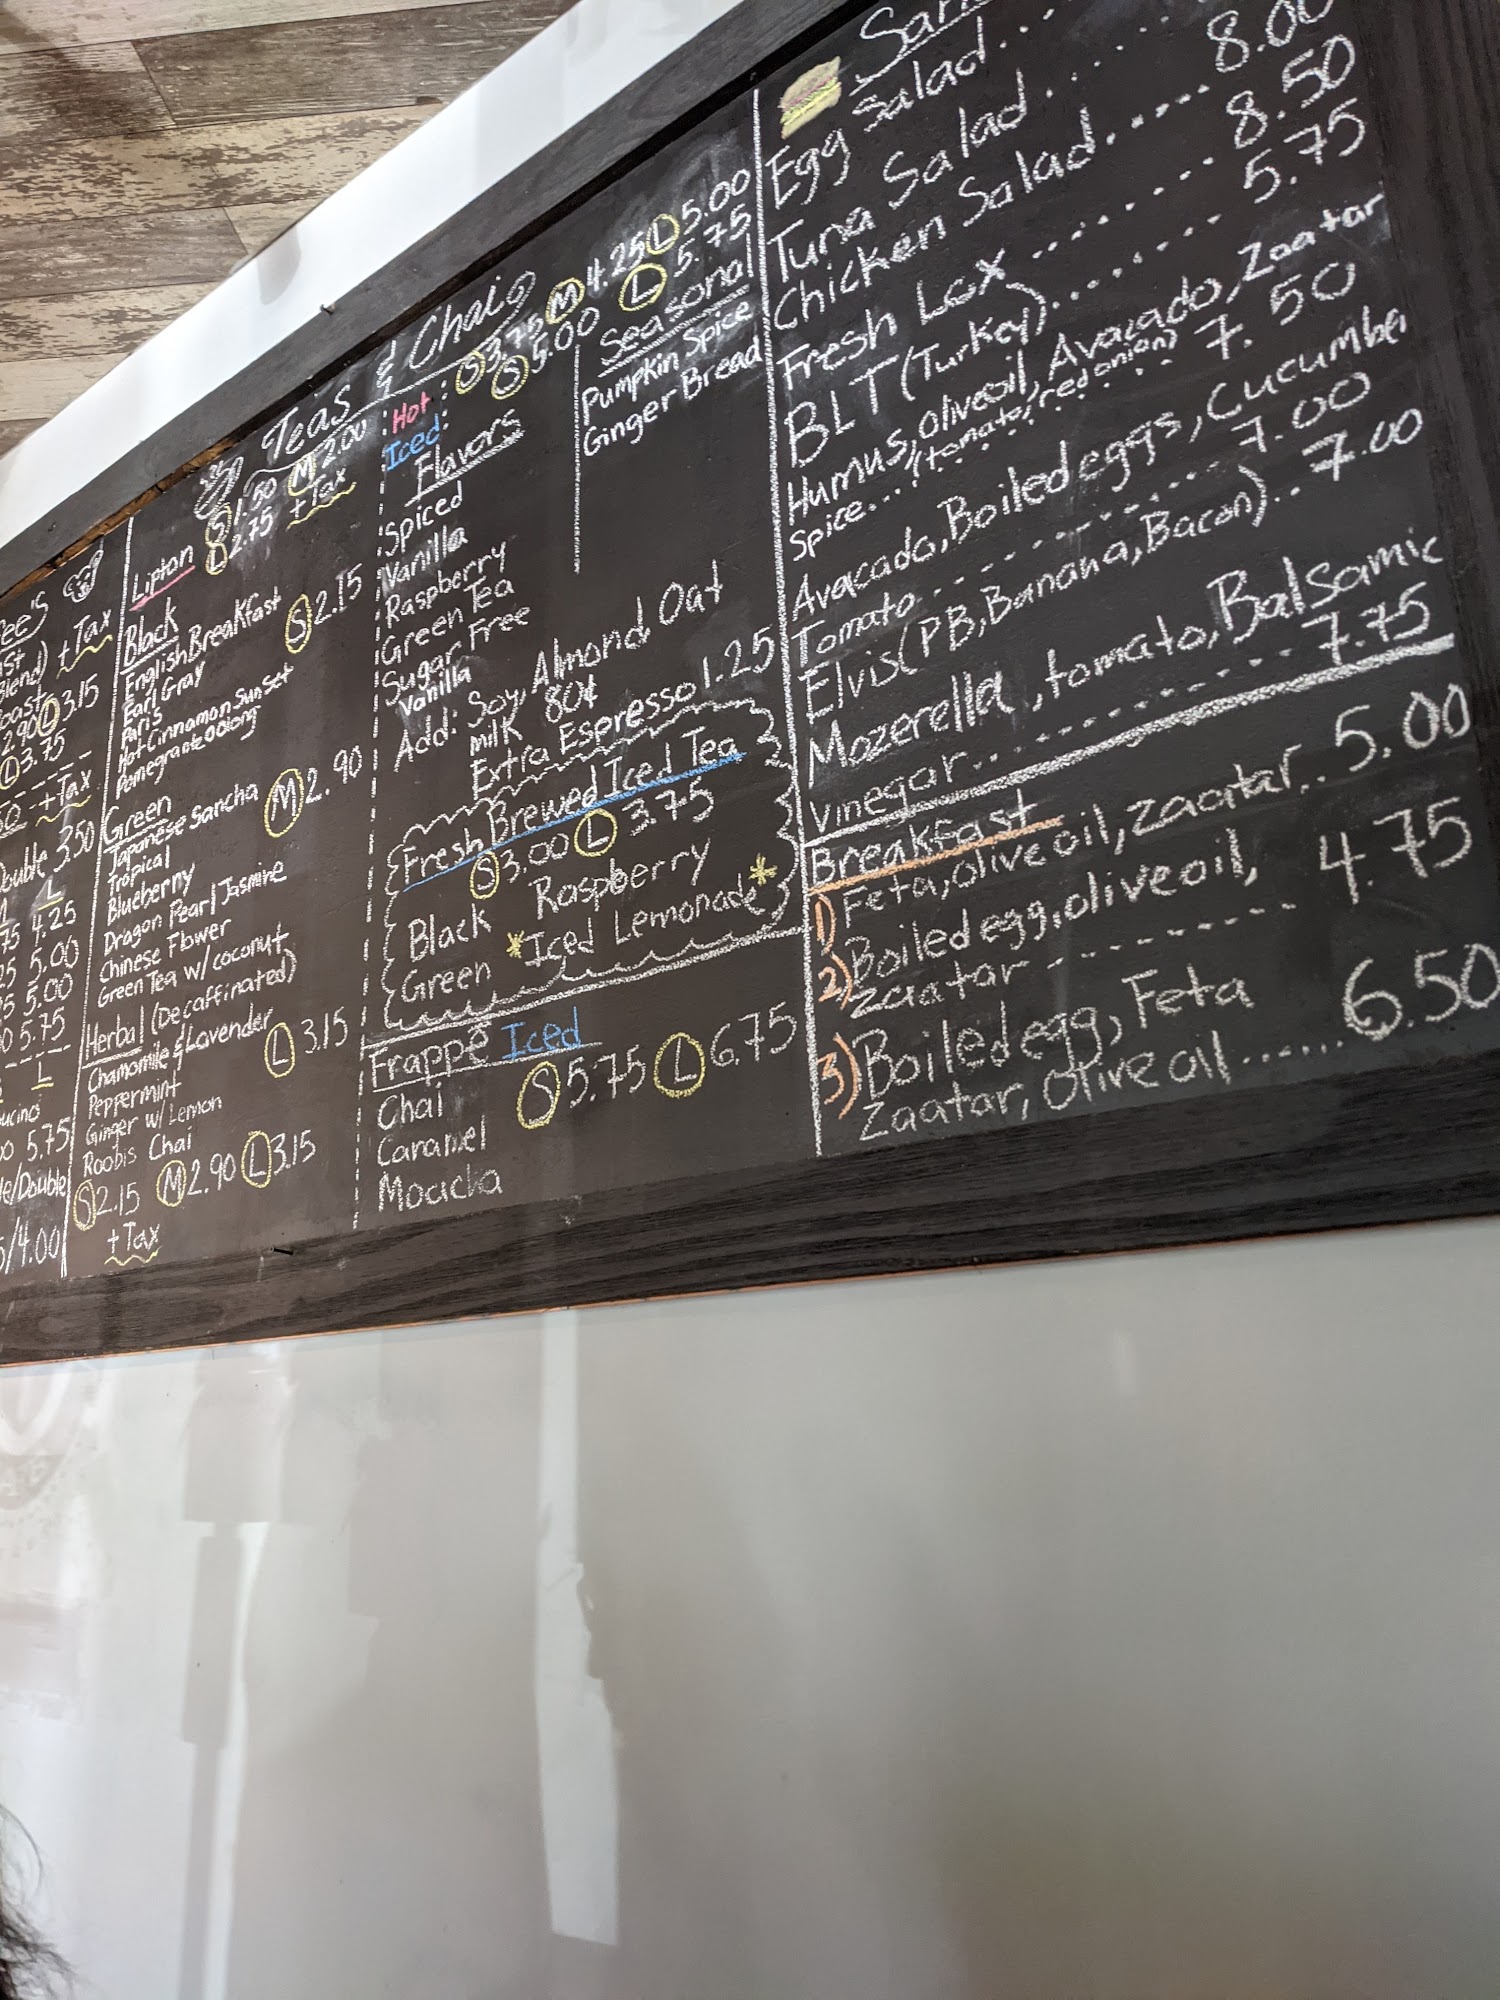 + Tax
3.15
2.90 L 3.75
+ Tax
Double 3.50
L
4.25
5.00
5.00
5.75
L
5.75
/4.00
Teas & Chais
Lipton S 1.50 M 2.00
L 2.75 + Tax
Black
English Breakfast S 2.15
Earl Gray
Paris
Hot Cinnamon Sunset
Pomegranate oolong
Green M 2.90
Japanese Sancha
Tropical
Blueberry
Dragon Pearl Jasmine
Chinese Flower
Green Tea w/ coconut
Herbal (Decaffinated)
Chamomile & Lavender L 3.15
Peppermint
Ginger w/ Lemon
Roobis Chai
S 2.15 M 2.90 L 3.15
+ Tax
Hot: S 3.75 M 4.25 L 5.00
Iced: S 5.00 L 5.75
Flavors
Spiced
Vanilla
Raspberry
Green Tea
Sugar Free
Vanilla
Seasonal
Pumpkin Spice
Ginger Bread
Add: Soy, Almond Oat
milk 80¢
Extra Espresso 1.25
Fresh Brewed Iced Tea
S 3.00 L 3.75
Black Raspberry
Green *Iced Lemonade*
Frappé Iced
Chai S 5.75 L 6.75
Caramel
Moacha
Egg Salad...
Tuna Salad....
Chicken Salad...... 8.00
Fresh Lox ........ 8.50
BLT (Turkey)....... 5.75
Humus, olive oil, Avacado, Zaatar
Spice... (tomato, red onion) ... 7.50
Avacado, Boiled eggs, Cucumber
Tomato......... 7.00
Elvis (PB, Banana, Bacon).. 7.00
Mozerella, tomato, Balsamic
Vinegar........ 7.75
Breakfast
1) Feta, olive oil, zaatar.. 5.00
2) Boiled egg, olive oil,
Zaatar ------- 4.75
3) Boiled egg, Feta
Zaatar, olive oil....... 6.50